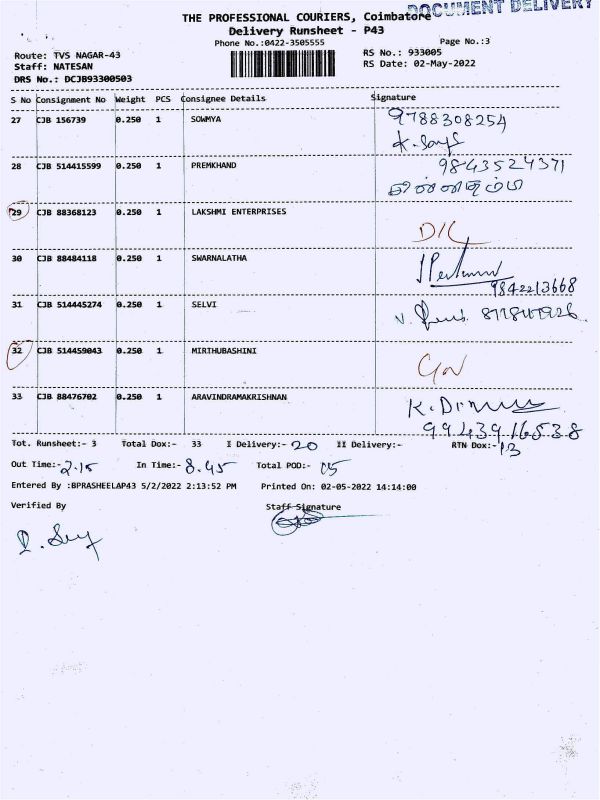 THE PROFESSIONAL COURIERS, Coimbatore
DOCUMENT DELIVERY
Delivery Runsheet - P43
Phone No.:0422-3505555
Page No.:3
Route: TVS NAGAR-43
RS No.: 933005
Staff: NATESAN
RS Date: 02-May-2022
DRS No.: DCJB93300503
S No Consignment No Weight PCS Consignee Details Signature
27 CJB 156739 0.250 1 SOWMYA 9788308254
28 CJB 514415599 0.250 1 PREMKHAND 9843524371
சின்னதம்பி
29 CJB 88368123 0.250 1 LAKSHMI ENTERPRISES
D/L
30 CJB 88484118 0.250 1 SWARNALATHA
9842213668
31 CJB 514445274 0.250 1 SELVI
32 CJB 514459043 0.250 1 MIRTHUBASHINI
33 CJB 88476702 0.250 1 ARAVINDRAMAKRISHNAN
9943916538
Tot. Runsheet:- 3 Total Dox:- 33 I Delivery:- 20 II Delivery:- RTN Dox:- 13
Out Time:- 2.15 In Time:- 8.45 Total POD:- 05
Entered By :BPRASHEELAP43 5/2/2022 2:13:52 PM Printed On: 02-05-2022 14:14:00
Verified By Staff Signature